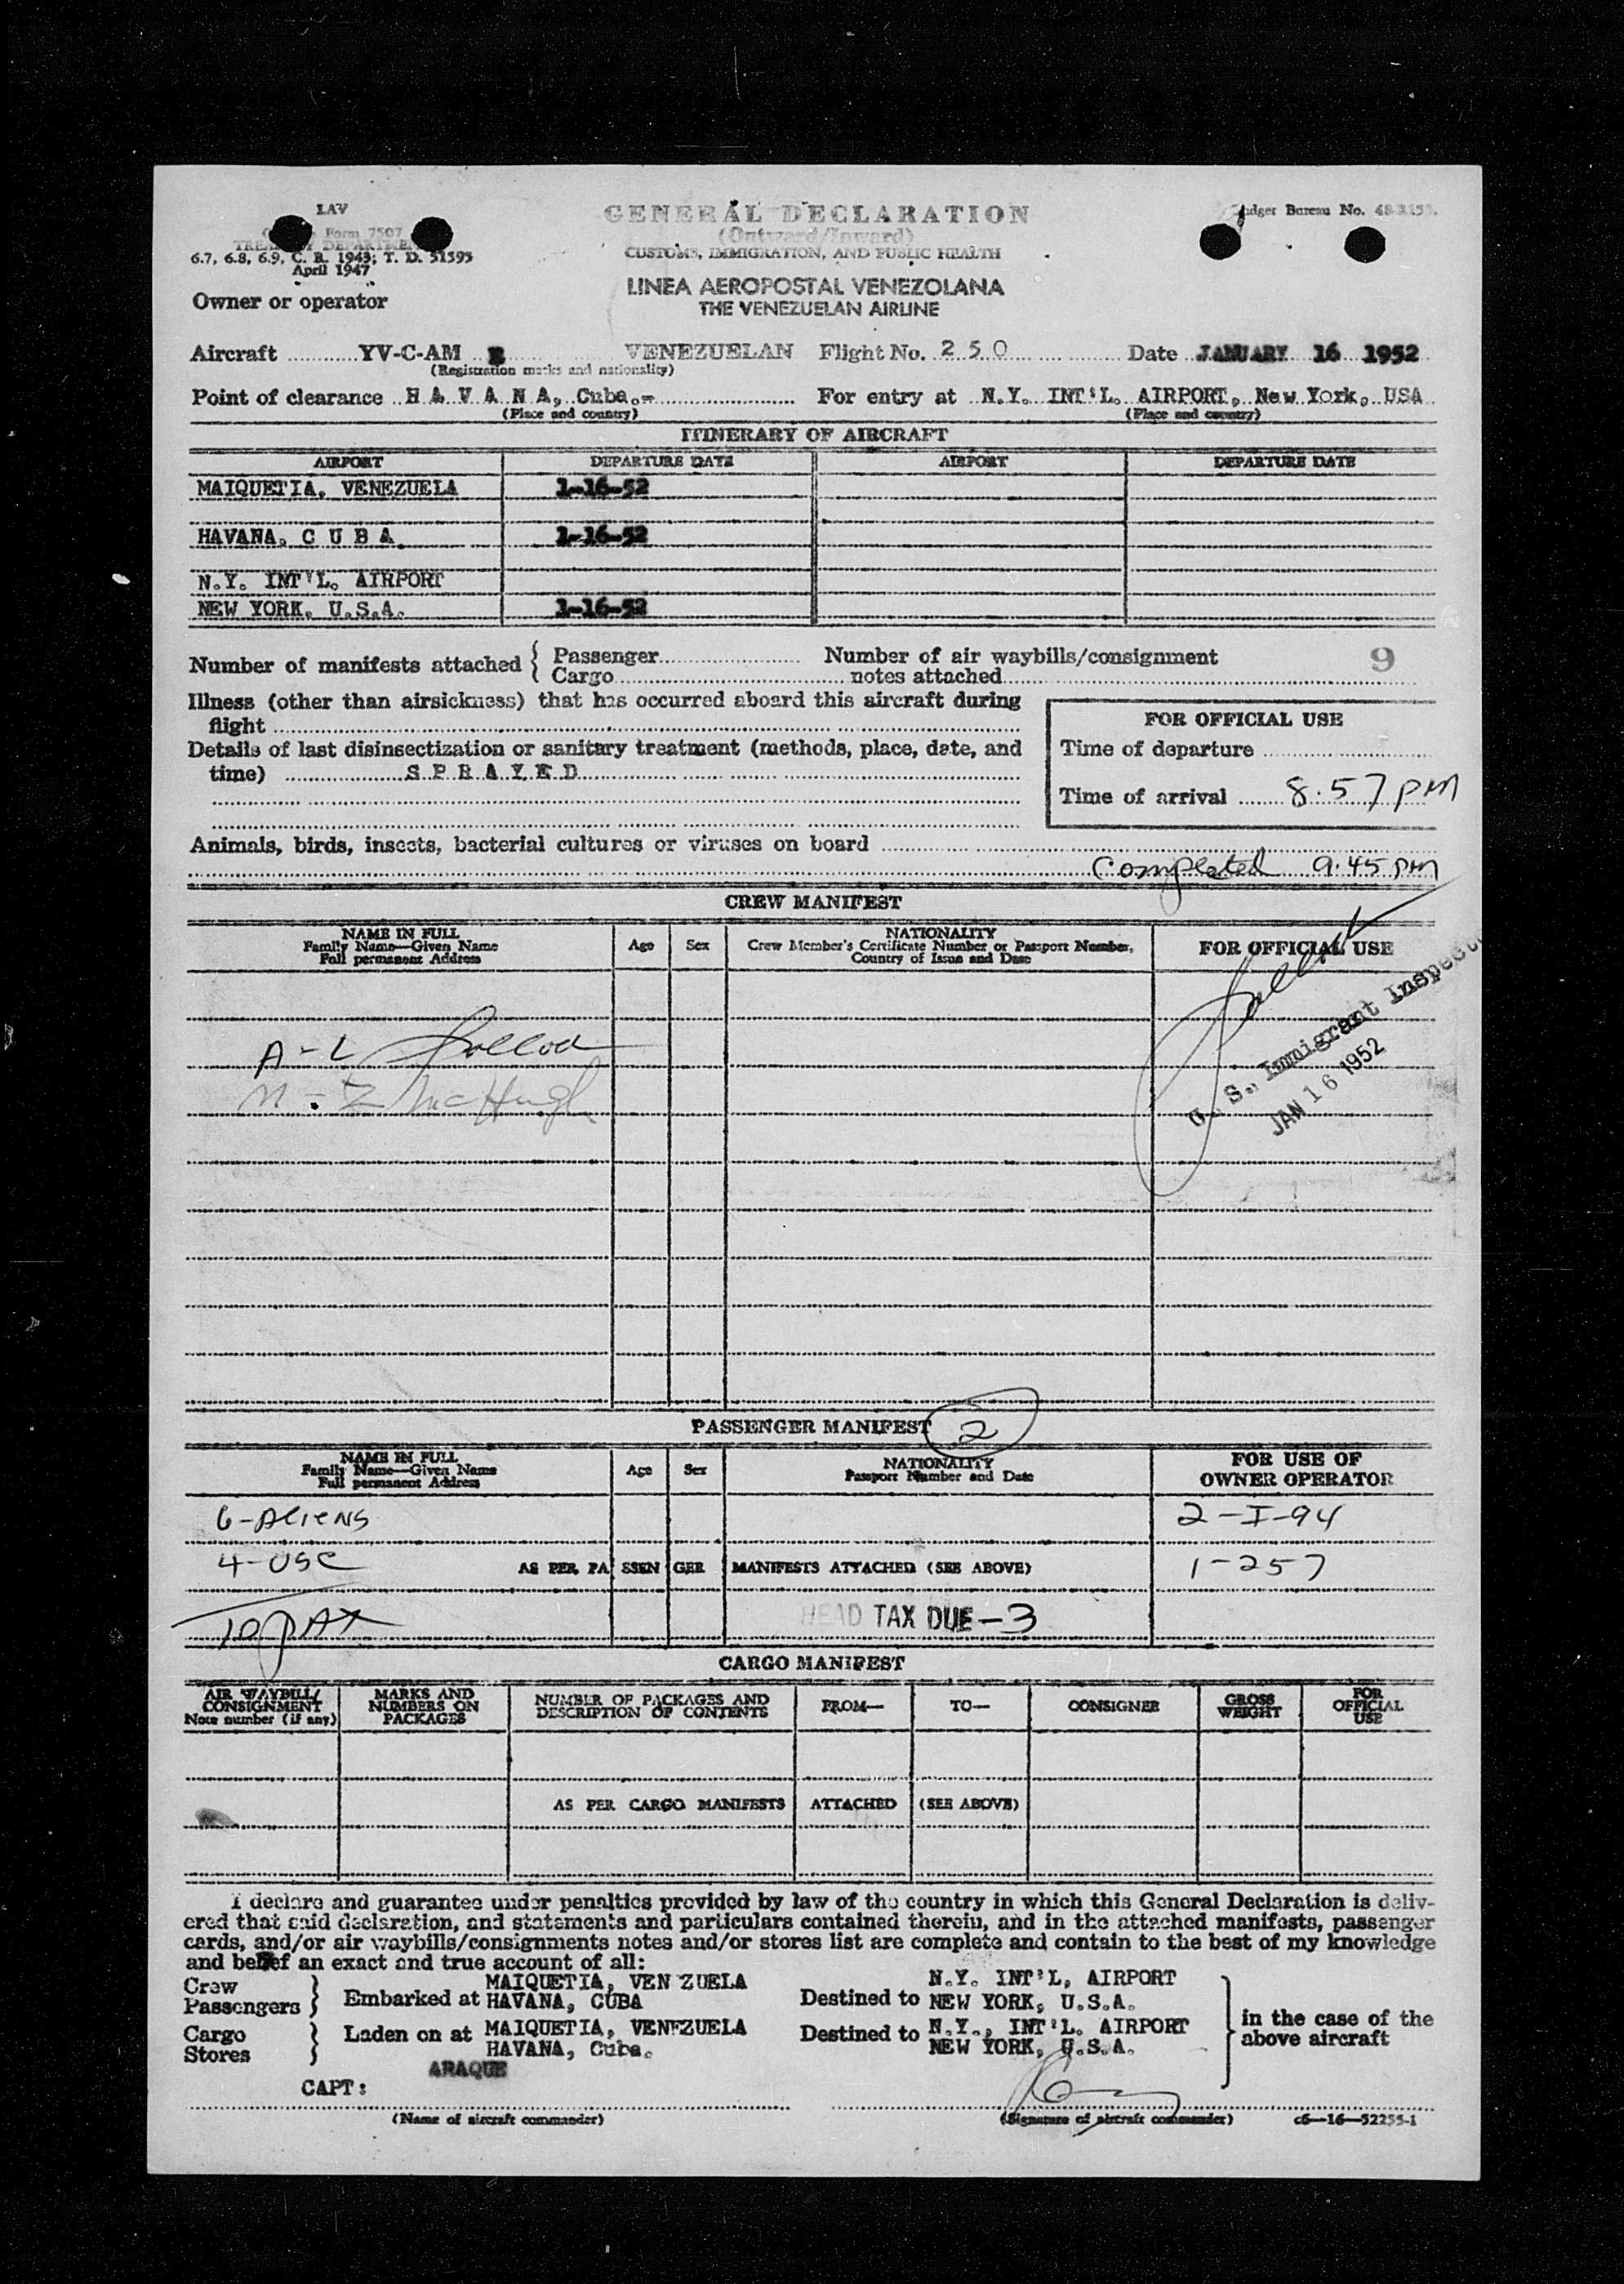 LAV
Form 7507
TREASURY DEPARTMENT
6.7, 6.8, 6.9, C. R. 1943; T. D. 51595
April 1947
GENERAL DECLARATION
(Outward/Inward)
CUSTOMS, IMMIGRATION, AND PUBLIC HEALTH
Budget Bureau No.
LINEA AEROPOSTAL VENEZOLANA
THE VENEZUELAN AIRLINE
Owner or operator
Aircraft YV-C-AM VENEZUELAN Flight No. 250 Date JANUARY 16 1952
(Registration marks and nationality)
Point of clearance H A V A N A, Cuba.- For entry at N.Y. INT'L. AIRPORT, New York, USA
(Place and country) (Place and country)
ITINERARY OF AIRCRAFT
AIRPORT DEPARTURE DATE AIRPORT DEPARTURE DATE
MAIQUETIA, VENEZUELA 1-16-52
HAVANA, C U B A 1-16-52
N.Y. INT'L. AIRPORT
NEW YORK, U.S.A. 1-16-52
Number of manifests attached { Passenger Number of air waybills/consignment 9
Cargo notes attached
Illness (other than airsickness) that has occurred aboard this aircraft during
flight
FOR OFFICIAL USE
Details of last disinsectization or sanitary treatment (methods, place, date, and
Time of departure
time) S P R A Y E D
Time of arrival 8.57 PM
Animals, birds, insects, bacterial cultures or viruses on board
Completed 9.45 PM
CREW MANIFEST
NAME IN FULL
Family Name—Given Name
Full permanent Address
Age Sex
NATIONALITY
Crew Member's Certificate Number or Passport Number,
Country of Issue and Date
FOR OFFICIAL USE
A-L
McHugh
U. S. Immigrant Inspector
JAN 16 1952
PASSENGER MANIFEST 2
NAME IN FULL
Family Name—Given Name
Full permanent Address
Age Sex
NATIONALITY
Passport Number and Date
FOR USE OF
OWNER OPERATOR
6-ALIENS 2-I-94
4-USC AS PER PA SSEN GER MANIFESTS ATTACHED (SEE ABOVE) 1-257
10 PAX HEAD TAX DUE-3
CARGO MANIFEST
AIR WAYBILL/
CONSIGNMENT
Note number (if any)
MARKS AND
NUMBERS ON
PACKAGES
NUMBER OF PACKAGES AND
DESCRIPTION OF CONTENTS
FROM— TO— CONSIGNER
GROSS
WEIGHT
FOR
OFFICIAL
USE
AS PER CARGO MANIFESTS ATTACHED (SEE ABOVE)
I declare and guarantee under penalties provided by law of the country in which this General Declaration is deliv-
ered that said declaration, and statements and particulars contained therein, and in the attached manifests, passenger
cards, and/or air waybills/consignments notes and/or stores list are complete and contain to the best of my knowledge
and belief an exact and true account of all:
Crew
Passengers } Embarked at MAIQUETIA, VEN ZUELA
HAVANA, CUBA
Destined to N.Y. INT'L, AIRPORT
NEW YORK, U.S.A.
Cargo
Stores } Laden on at MAIQUETIA, VENEZUELA
HAVANA, Cuba.
Destined to N.Y., INT'L. AIRPORT
NEW YORK, U.S.A.
} in the case of the
above aircraft
ARAQUE
CAPT:
(Name of aircraft commander) (Signature of aircraft commander) c6—16—52255-1